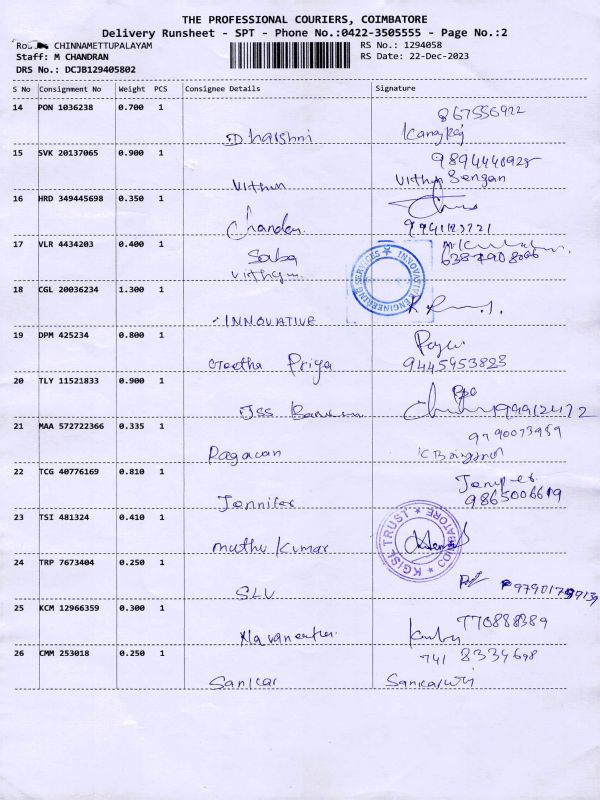 THE PROFESSIONAL COURIERS, COIMBATORE
Delivery Runsheet - SPT - Phone No.:0422-3505555 - Page No.:2
CHINNAMETTUPALAYAM
RS No.: 1294058
Staff: M CHANDRAN
RS Date: 22-Dec-2023
DRS No.: DCJB129405802
S No Consignment No Weight PCS Consignee Details Signature
14 PON 1036238 0.700 1
Dharshni
15 SVK 20137065 0.900 1
Vithun
16 HRD 349445698 0.350 1
Chandan
17 VLR 4434203 0.400 1
Saba
INNOVATIVE ENGINEERING SERVICES
18 CGL 20036234 1.300 1
INNOVATIVE
19 DPM 425234 0.800 1
Geetha Priya
9445953823
20 TLY 11521833 0.900 1
JSS
21 MAA 572722366 0.335 1
9790073989
Pagavan
22 TCG 40776169 0.810 1
9865006619
Jennifer
23 TSI 481324 0.410 1
KGISL TRUST COIMBATORE
Muthu Kumar
24 TRP 7673404 0.250 1
SLV
25 KCM 12966359 0.300 1
770888389
26 CMM 253018 0.250 1
741 8334698
Sankar